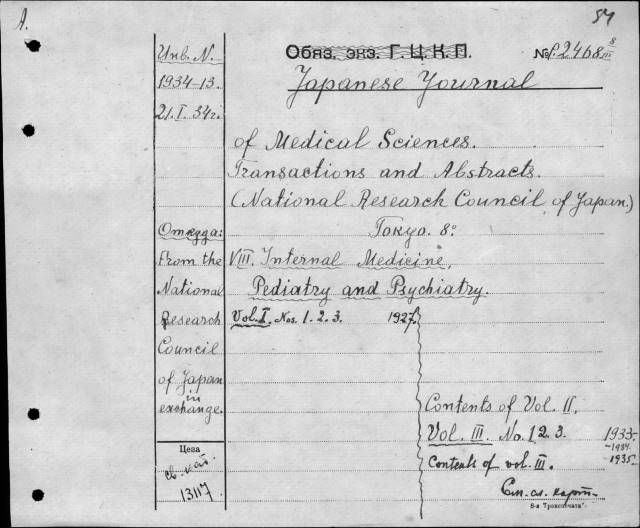 А.
84
Инв. N.
1934-13.
21.I.34г.
Обяз. экз. Г.Ц.К.П.
№ P.2468 8/III
Japanese Journal
of Medical Sciences.
Transactions and Abstracts.
(National Research Council of Japan.)
Tokyo. 8º
Откуда:
From the
National
Research
Council
of Japan
in
exchange.
VIII. Internal Medicine,
Pediatry and Psychiatry.
Vol. I. Nos. 1. 2. 3. 1927.
Contents of Vol. II.
Vol. III. No. 1 2. 3. 1933-
-1934-
1935.
Contents of vol. III.
См. сл. карт.
Цена
13117
8-я Транспечать